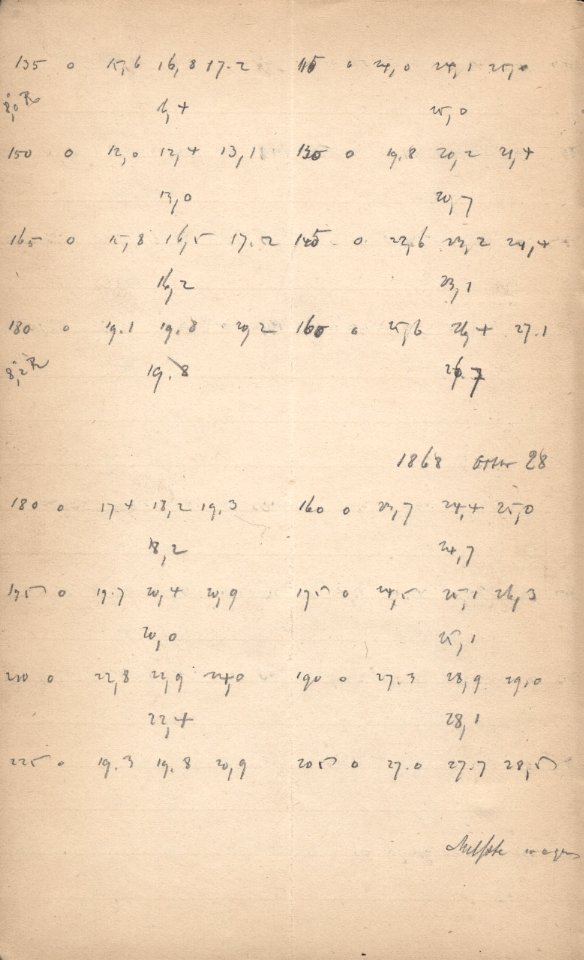 135 0 15,6 16,8 17.2 115 0 24,0 24,1 25,0
8,0 R 16,4 25,0
150 0 12,0 12,4 13,1 130 0 19.8 20,2 21,4
13,0 20,7
165 0 15,8 16,5 17.2 145 0 22,6 23,2 24,4
16,2 23,1
180 0 19.1 19.8 20,2 160 0 25,6 26,4 27.1
8,2 R 19.8 26.7
1868 28
180 0 17 4 18,2 19,3 160 0 23,7 24,4 25,0
18,2 24,7
195 0 19.7 20,4 20,9 175 0 24,5 25,1 26,3
20,0 25,1
210 0 22,8 22,9 24,0 190 0 27.3 28,9 29,0
22,4 28,1
225 0 19.3 19.8 20,9 205 0 27.0 27.7 28,5